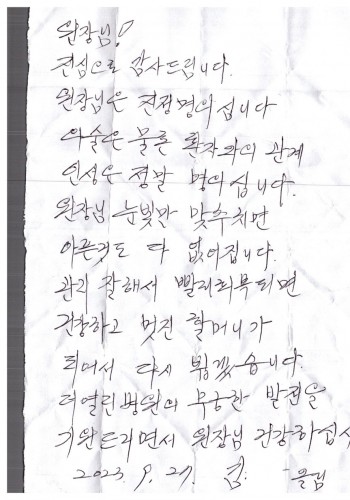 원장님!
진심으로 감사드립니다.
원장님은 진정명의십니다
의술은 물론 환자와의 관계
인성은 정말 명의십니다.
원장님 눈빛만 맞추치면
아픈것도 다 없어집니다.
관리 잘해서 빨리회복되면
건강하고 멋진 할머니가
되어서 다시 뵙겠습니다.
더열린병원의 무궁한 발전을
기원드리면서 원장님 건강하십시
2023. 9. 27. 김 올림